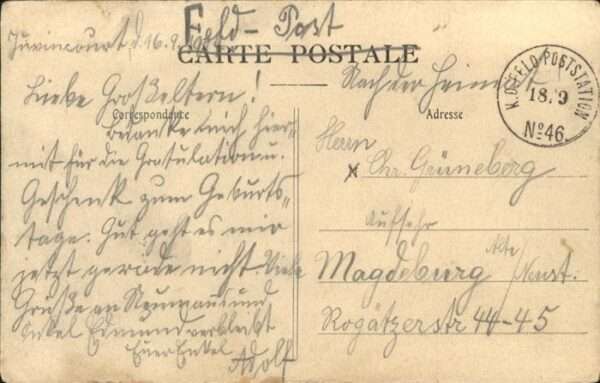 Feld-Post
CARTE POSTALE
Juvincourt d. 16.9.
Nach der Heimat
K.D. FELD-POSTSTATION
18. 9
№46.
Liebe Großeltern!
Correspondance
Adresse
bedanke mich hier-
mit für die Gratulation u.
Geschenk zum Geburts-
tage. Gut geht es mir
jetzt gerade nicht Viele
Grüße an und
Onkel Edmund verbleibt
Euer Enkel
Adolf
Herrn
Chr. Grüneberg
Aufseher
Magdeburg Alte Neust.
Rogätzerstr 44-45